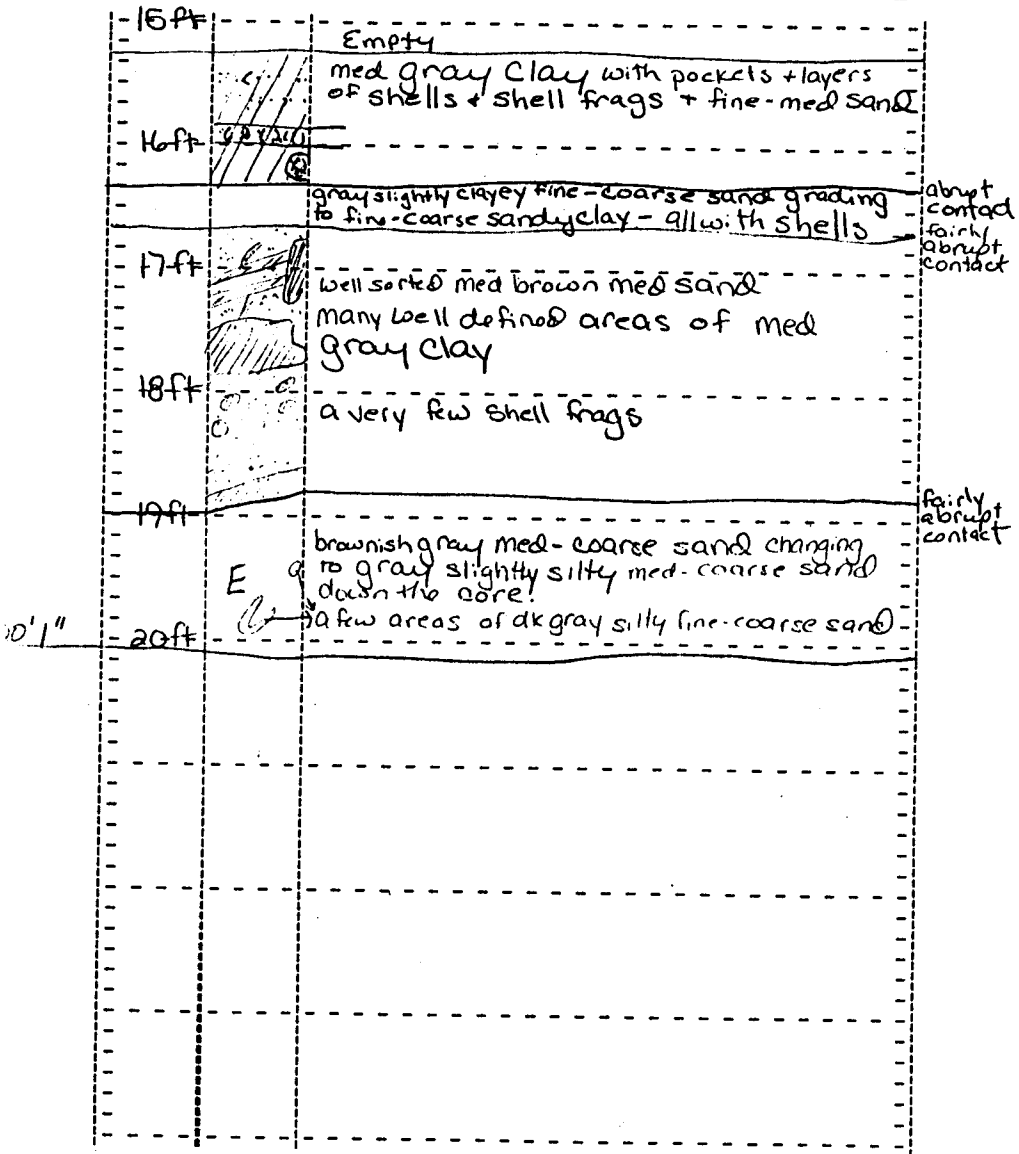 15ft
Empty
med gray Clay with pockets + layers
of shells + shell frags + fine-med sand
16ft
gray slightly clayey fine-coarse sand grading
to fine-coarse sandy clay - all with shells
abrupt
contact
fairly
abrupt
contact
17ft
well sorted med brown med sand
many well defined areas of med
gray clay
18ft
a very few shell frags
19ft
fairly
abrupt
contact
brownish gray med-coarse sand changing
to gray slightly silty med-coarse sand
down the core.
E
a few areas of dk gray silty fine-coarse sand
0'1"
20ft